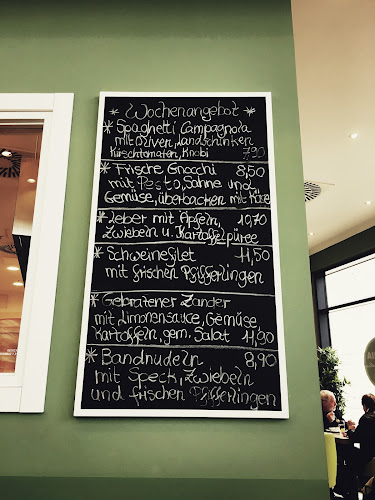 * Wochenangebot *
* Spaghetti Campagnola
mit Oliven, Landschinken
Kirschtomaten, Knobi 7,90
* Frische Gnocchi 8,50
mit Pesto, Sahne und
Gemüse, überbacken mit Käse
* Leber mit Äpfeln, 10,70
Zwiebeln u. Kartoffelpüree
* Schweinefilet 11,50
mit frischen Pfifferlingen
* Gebratener Zander
mit Limonensauce, Gemüse
Kartoffeln, gem. Salat 11,90
* Bandnudeln 8,90
mit Speck, Zwiebeln
und frischen Pfifferlingen